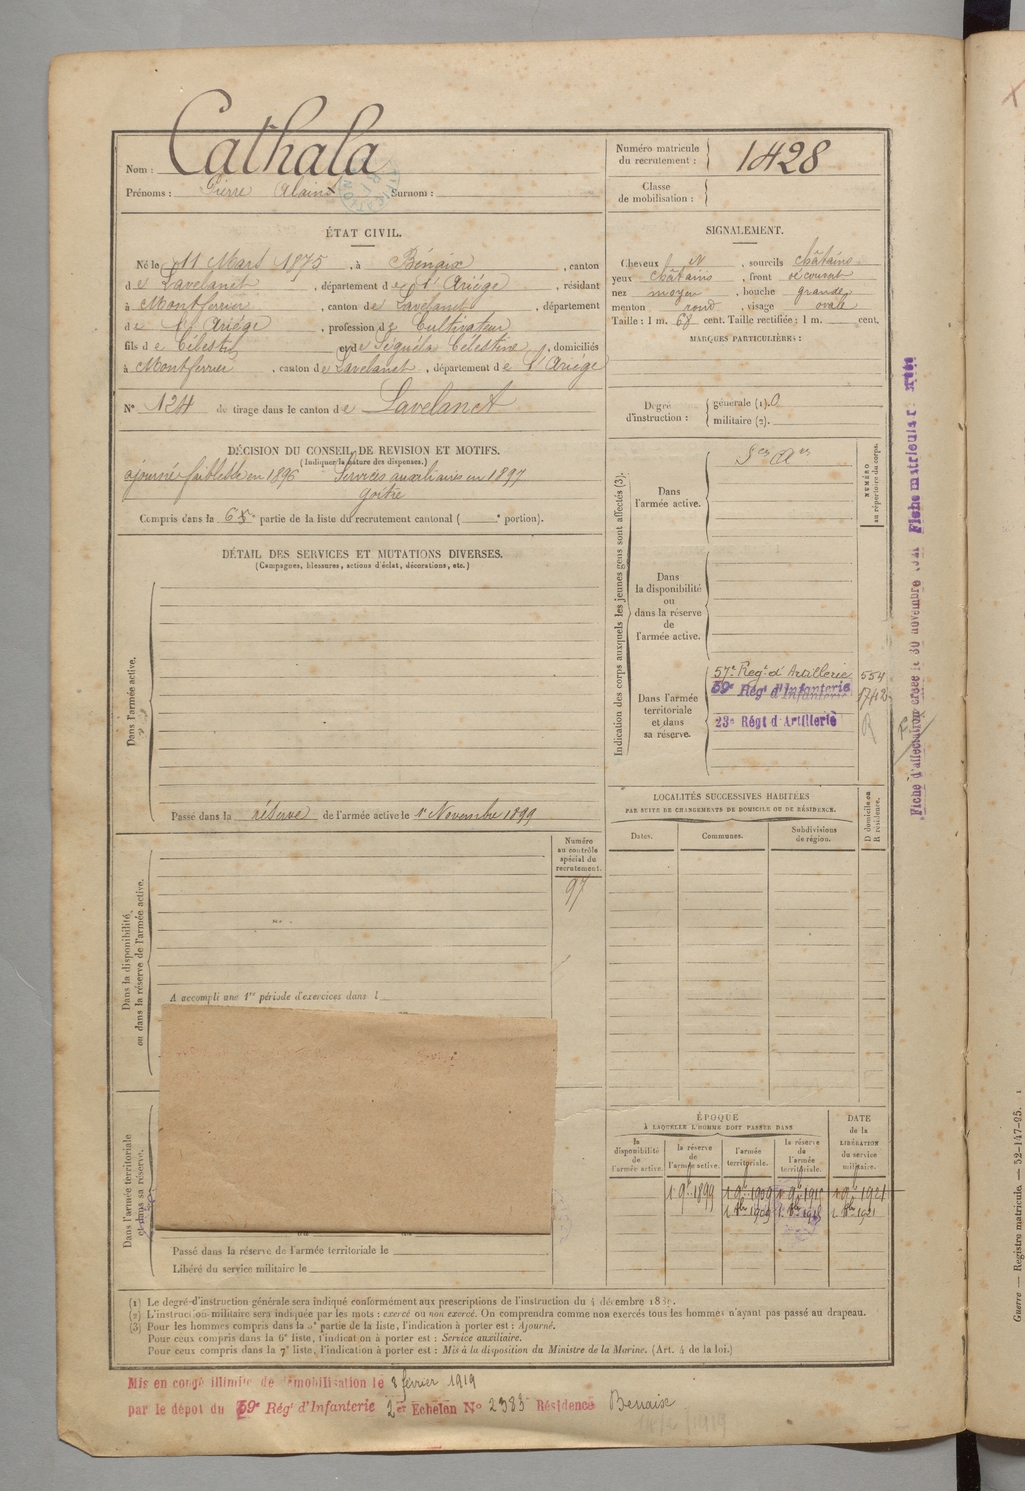 Nom : Cathala
Prénoms : Pierre Alain Surnom :
Numéro matricule du recrutement : 1428
Classe de mobilisation :
ÉTAT CIVIL.
Né le 11 Mars 1875, à Bénaix, canton
de Lavelanet, département de l'Ariége, résidant
à Montferrier, canton de Lavelanet, département
de l'Ariége, profession de Cultivateur
fils de Célestin et de Séguéla Célestine, domiciliés
à Montferrier, canton de Lavelanet, département de l'Ariége
N° 124 de tirage dans le canton de Lavelanet
SIGNALEMENT.
Cheveux N, sourcils châtains
yeux châtains, front découvert
nez moyen, bouche grande
menton rond, visage ovale
Taille : 1 m. 68 cent. Taille rectifiée : 1 m. cent.
MARQUES PARTICULIÈRES :
Degré d'instruction : générale (1). 0
militaire (2).
DÉCISION DU CONSEIL DE REVISION ET MOTIFS.
(Indiquer la nature des dispenses.)
ajourné faiblesse en 1896 Services auxiliaires en 1897
goître
Compris dans la 6e partie de la liste du recrutement cantonal ( e portion).
DÉTAIL DES SERVICES ET MUTATIONS DIVERSES.
(Campagnes, blessures, actions d'éclat, décorations, etc.)
Dans l'armée active.
Passé dans la réserve de l'armée active le 1er Novembre 1899
Indication des corps auxquels les jeunes gens sont affectés (3).
NUMÉRO au répertoire du corps.
Dans l'armée active.
Sces Ares
Dans la disponibilité ou dans la réserve de l'armée active.
Dans l'armée territoriale et dans sa réserve.
57e Régt d'Artillerie 554
59e Régt d'Infanterie 1742
23e Régt d'Artillerie R
Fiche d'affectation créée le 30 novembre Fiche matricule
LOCALITÉS SUCCESSIVES HABITÉES
PAR SUITE DE CHANGEMENTS DE DOMICILE OU DE RÉSIDENCE.
Dates.
Communes.
Subdivisions de région.
D domicile ou R résidence.
Numéro au contrôle spécial du recrutement.
97
Dans la disponibilité, ou dans la réserve de l'armée active.
A accompli une 1re période d'exercices dans l
Dans l'armée territoriale et dans sa réserve.
Passé dans la réserve de l'armée territoriale le
Libéré du service militaire le
ÉPOQUE
À LAQUELLE L'HOMME DOIT PASSER DANS
la disponibilité de l'armée active.
la réserve de l'armée active.
l'armée territoriale.
la réserve de l'armée territoriale.
DATE de la LIBÉRATION du service militaire.
1 9b 1899 1 9b 1909 1 9b 1915 1 9b 1921
(1) Le degré d'instruction générale sera indiqué conformément aux prescriptions de l'instruction du 4 décembre 1889.
(2) L'instruction militaire sera indiquée par les mots : exercé ou non exercé. On comprendra comme non exercés tous les hommes n'ayant pas passé au drapeau.
(3) Pour les hommes compris dans la 5e partie de la liste, l'indication à porter est : Ajourné.
Pour ceux compris dans la 6e liste, l'indication à porter est : Service auxiliaire.
Pour ceux compris dans la 7e liste, l'indication à porter est : Mis à la disposition du Ministre de la Marine. (Art. 4 de la loi.)
Mis en congé illimité de démobilisation le 8 février 1919
par le dépôt du 59e Régt d'Infanterie 2er Echelon N° 2383 Résidence Benaix
Guerre — Registre matricule. — 52-147-95.